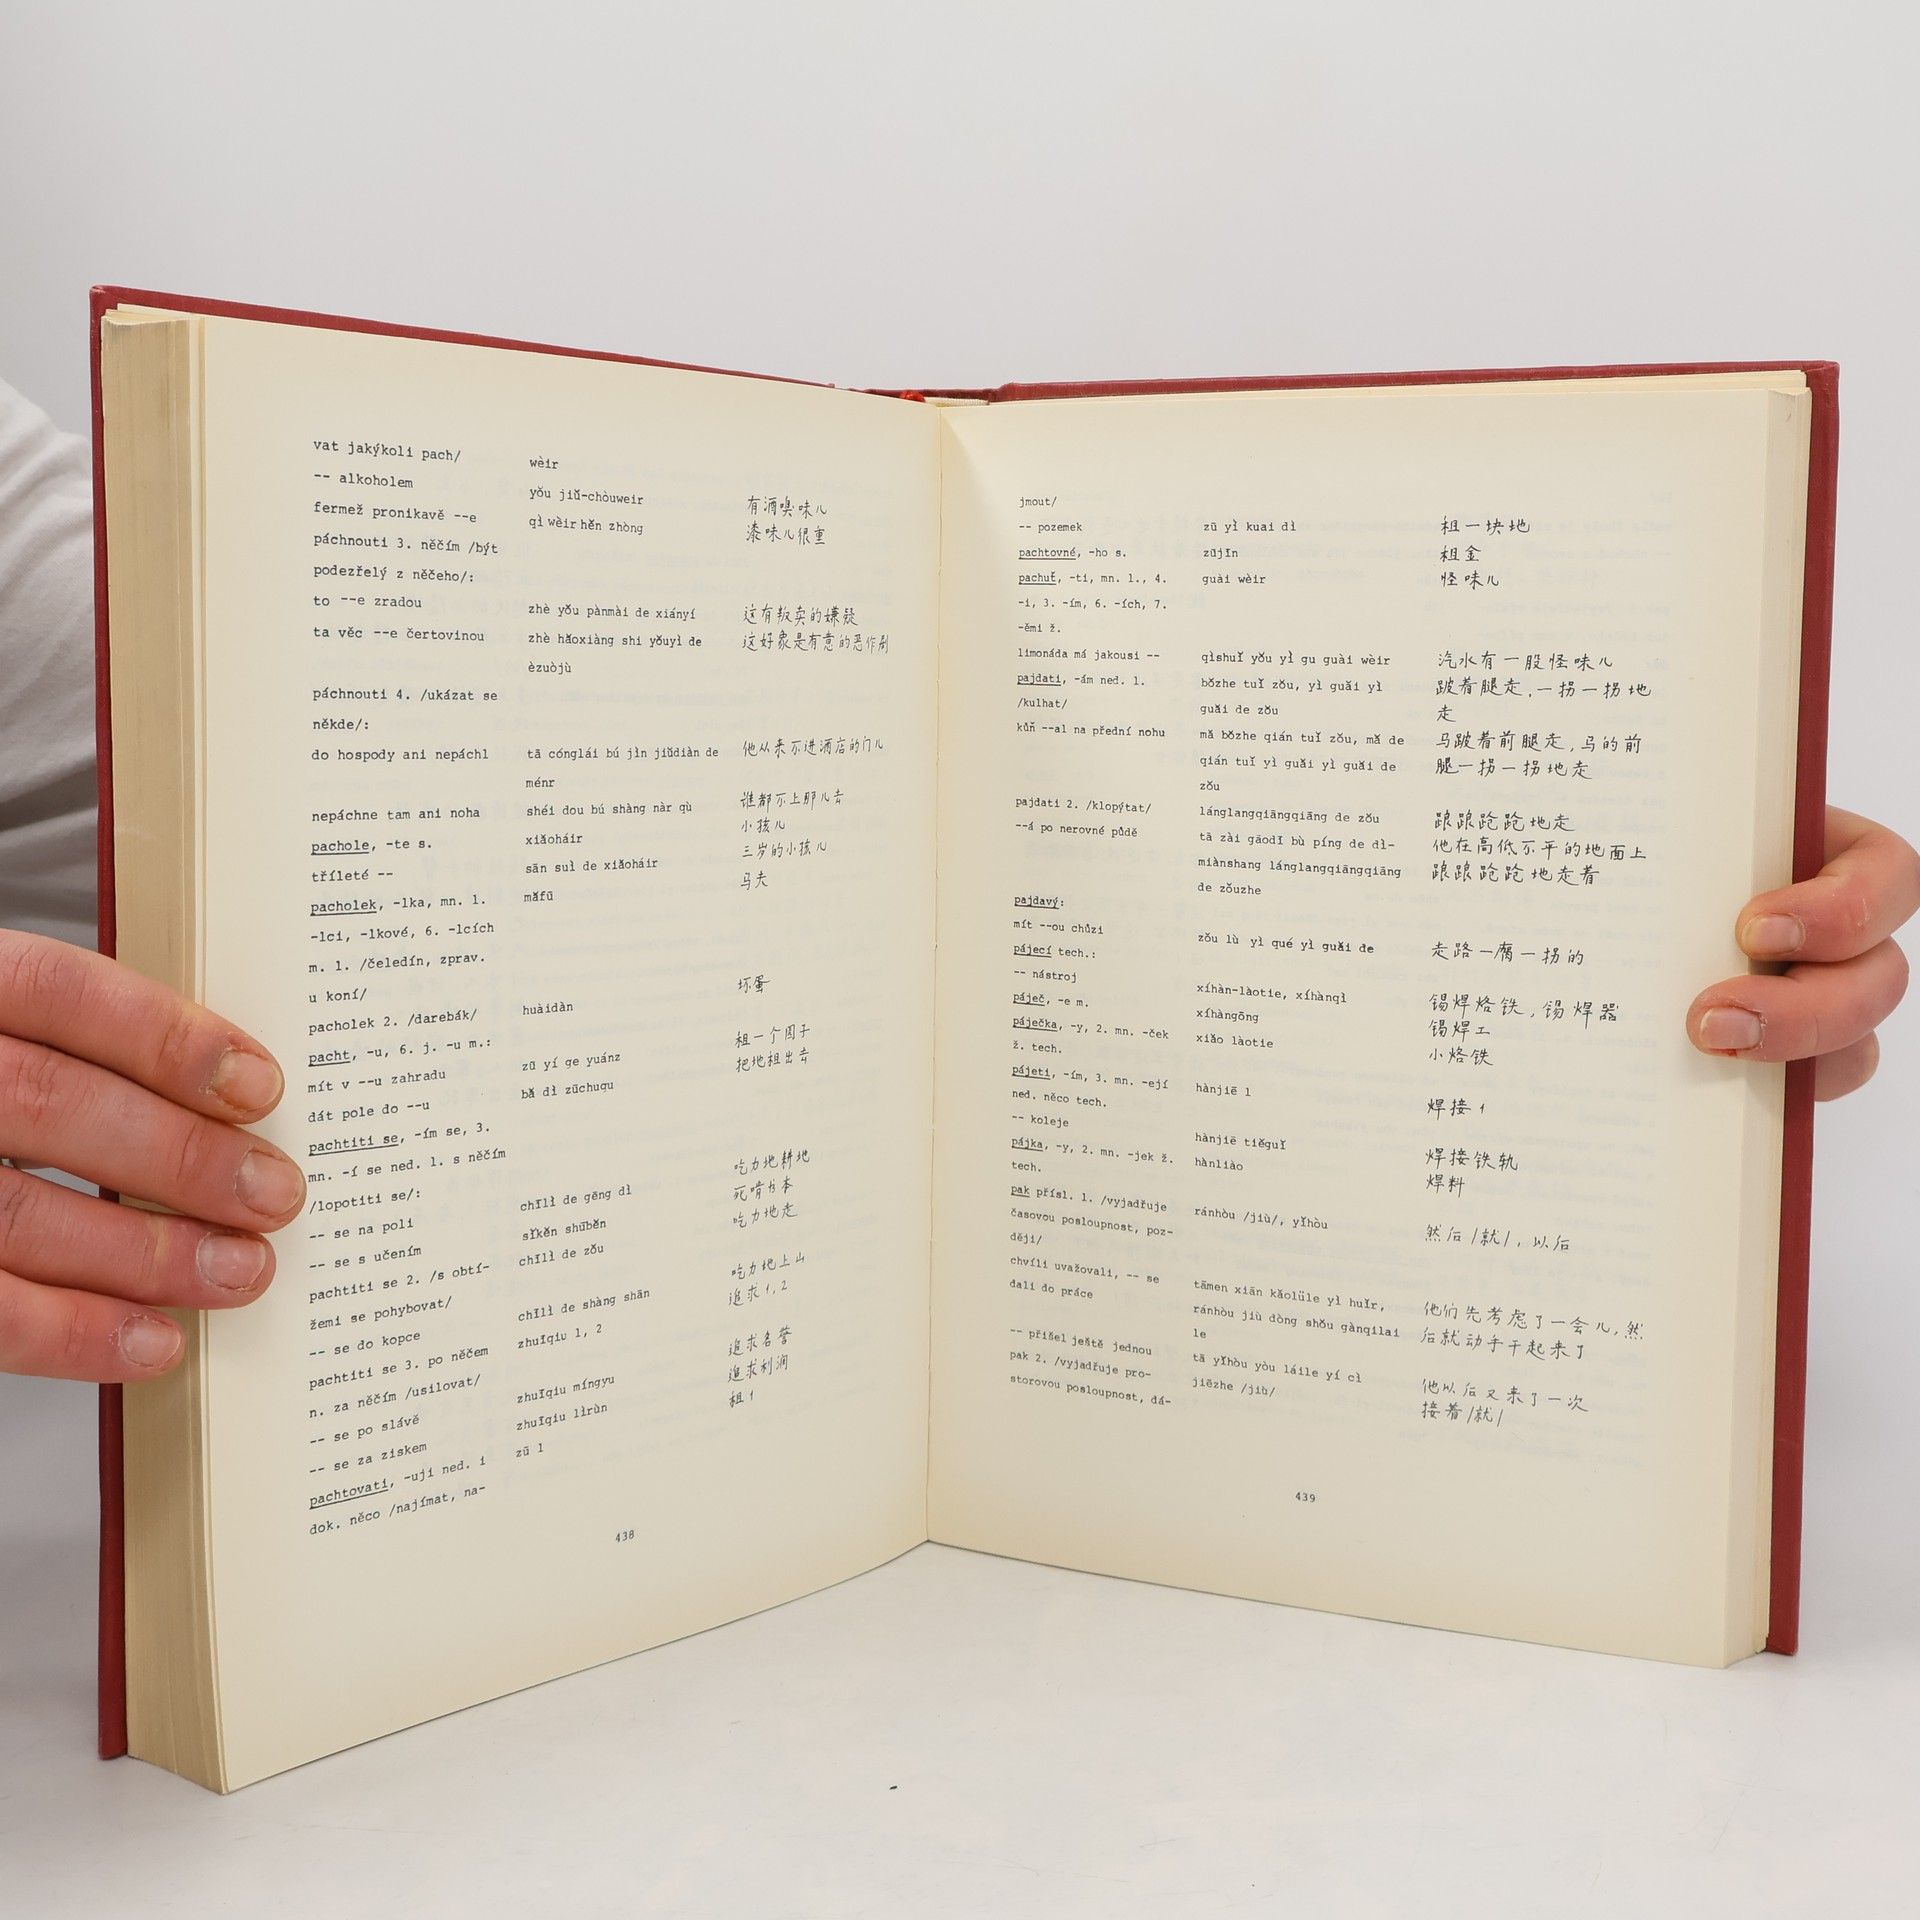 vat jakýkoli pach/ wèir
-- alkoholem yǒu jiǔ-chòuweir 有酒嗅味儿
fermež pronikavě --e qì wèir hěn zhòng 漆味儿很重
páchnouti 3. něčím /být
podezřelý z něčeho/:
to --e zradou zhè yǒu pànmài de xiányí 这有叛卖的嫌疑
ta věc --e čertovinou zhè hǎoxiàng shi yǒuyì de 这好象是有意的恶作剧
èzuòjù
páchnouti 4. /ukázat se
někde/:
do hospody ani nepáchl tā cónglái bú jìn jiǔdiàn de 他从来不进酒店的门儿
ménr
nepáchne tam ani noha shéi dou bú shàng nàr qù 谁都不上那儿去
pachole, -te s. xiǎoháir 小孩儿
tříleté -- sān suì de xiǎoháir 三岁的小孩儿
pacholek, -lka, mn. 1. mǎfū 马夫
-lci, -lkové, 6. -lcích
m. 1. /čeledín, zprav.
u koní/
pacholek 2. /darebák/ huàidàn 坏蛋
pacht, -u, 6. j. -u m.:
mít v --u zahradu zū yí ge yuánz 租一个园子
dát pole do --u bǎ dì zūchuqu 把地租出去
pachtiti se, -ím se, 3.
mn. -í se ned. 1. s něčím
/lopotiti se/:
-- se na poli chīlì de gēng dì 吃力地耕地
-- se s učením sǐkěn shūběn 死啃书本
pachtiti se 2. /s obtí- chīlì de zǒu 吃力地走
žemi se pohybovat/
-- se do kopce chīlì de shàng shān 吃力地上山
pachtiti se 3. po něčem zhuīqiu 1, 2 追求1,2
n. za něčím /usilovat/
-- se po slávě zhuīqiu míngyu 追求名誉
-- se za ziskem zhuīqiu lìrùn 追求利润
pachtovati, -uji ned. i zū 1 租1
dok. něco /najímat, na-
438
jmout/
-- pozemek zū yì kuai dì 租一块地
pachtovné, -ho s. zūjīn 租金
pachuť, -ti, mn. 1., 4. guài wèir 怪味儿
-i, 3. -ím, 6. -ích, 7.
-ěmi ž.
limonáda má jakousi -- qìshuǐ yǒu yì gu guài wèir 汽水有一股怪味儿
pajdati, -ám ned. 1. bǒzhe tuǐ zǒu, yì guǎi yì 跛着腿走,一拐一拐地
/kulhat/ guǎi de zǒu 走
kůň --al na přední nohu mǎ bǒzhe qián tuǐ zǒu, mǎ de 马跛着前腿走,马的前
qián tuǐ yì guǎi yì guǎi de 腿一拐一拐地走
zǒu
pajdati 2. /klopýtat/ lánglangqiāngqiāng de zǒu 踉踉跄跄地走
--á po nerovné půdě tā zài gāodī bù píng de dì- 他在高低不平的地面上
miànshang lánglangqiāngqiāng 踉踉跄跄地走着
de zǒuzhe
pajdavý:
mít --ou chůzi zǒu lù yì qué yì guǎi de 走路一瘸一拐的
pájecí tech.:
-- nástroj xíhàn-làotie, xíhànqì 锡焊烙铁,锡焊器
páječ, -e m. xíhàngōng 锡焊工
páječka, -y, 2. mn. -ček xiǎo làotie 小烙铁
ž. tech.
pájeti, -ím, 3. mn. -ejí hànjiē 1 焊接1
ned. něco tech.
-- koleje hànjiē tiěguǐ 焊接铁轨
pájka, -y, 2. mn. -jek ž. hànliào 焊料
tech.
pak přísl. 1. /vyjadřuje ránhòu /jiù/, yǐhòu 然后/就/,以后
časovou posloupnost, poz-
ději/
chvíli uvažovali, -- se tāmen xiān kǎolüle yì huǐr, 他们先考虑了一会儿,然
dali do práce ránhòu jiù dòng shǒu gànqilai 后就动手干起来了
le
-- přišel ještě jednou tā yǐhòu yòu láile yí cì 他以后又来了一次
pak 2. /vyjadřuje pro- jiēzhe /jiù/ 接着/就/
storovou posloupnost, dá-
439